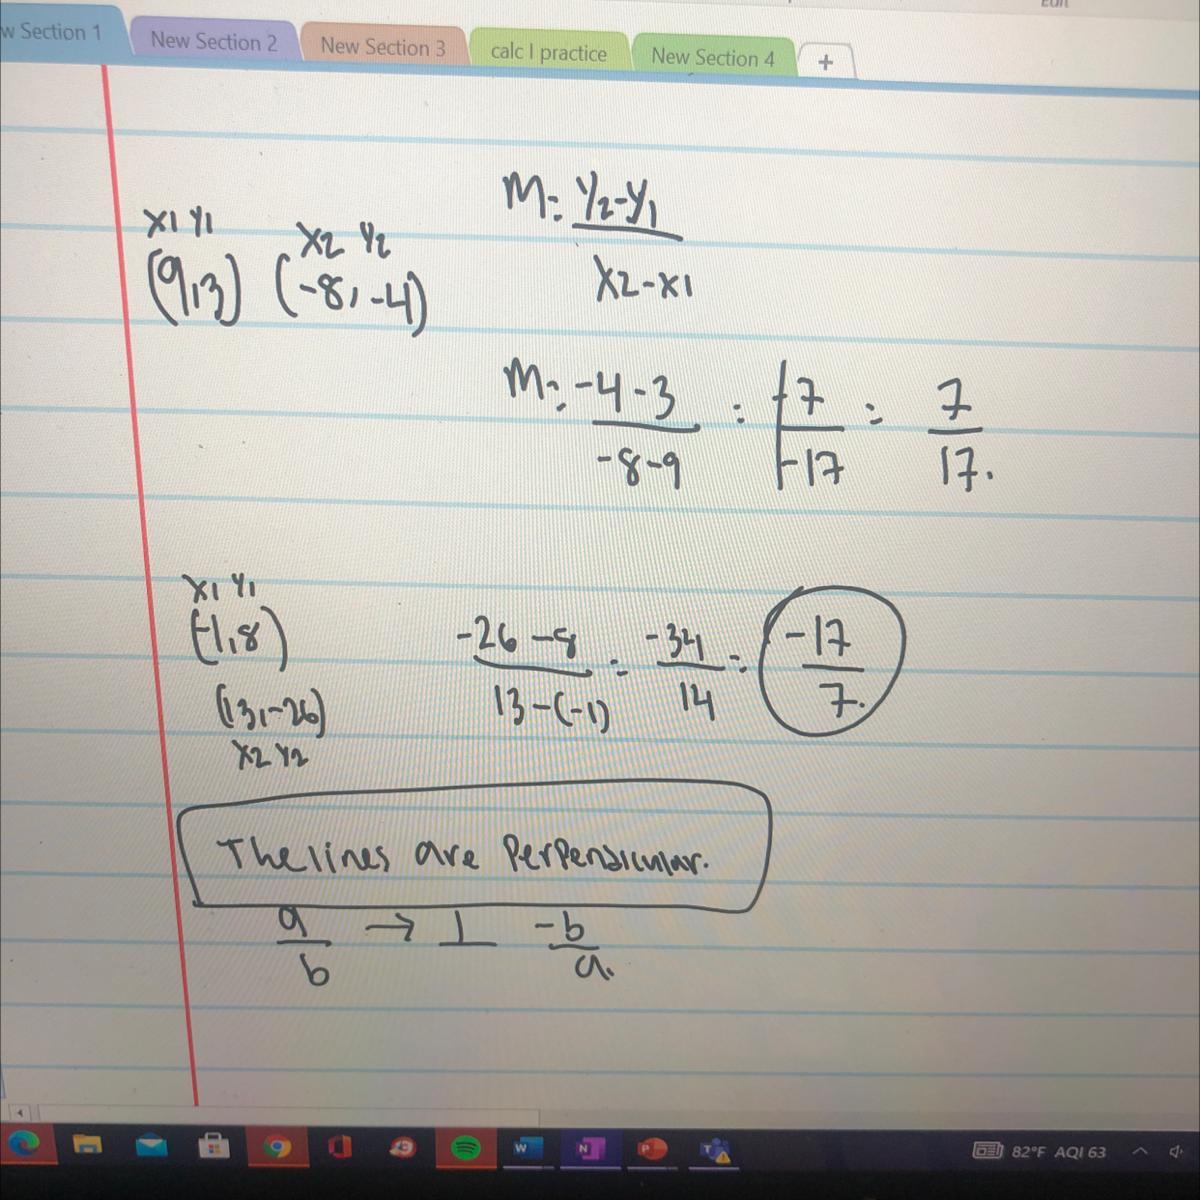 Edit
w Section 1 New Section 2 New Section 3 calc I practice New Section 4 +
x1 y1
(9,3)
x2 y2
(-8,-4)
M= y2-y1
x2-x1
M= -4-3 = -7 = 7
-8-9 -17 17.
x1 y1
(-1,8)
(13,-26)
x2 y2
-26-8 = -34 = -17
13-(-1) 14 7.
The lines are Perpendicular.
a → ⊥ -b
b a.
82°F AQI 63